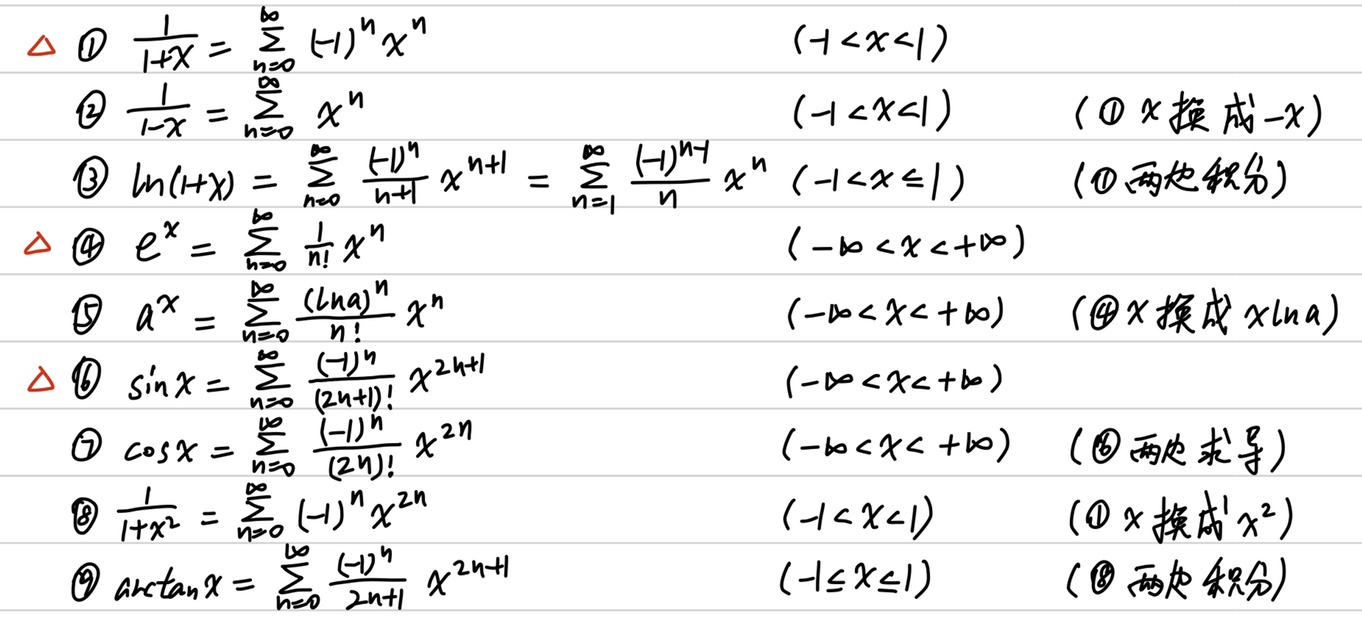 △ ① \frac{1}{1+x} = \sum_{n=0}^{\infty} (-1)^n x^n (-1<x<1)
② \frac{1}{1-x} = \sum_{n=0}^{\infty} x^n (-1<x<1) (① x换成-x)
③ ln(1+x) = \sum_{n=0}^{\infty} \frac{(-1)^n}{n+1} x^{n+1} = \sum_{n=1}^{\infty} \frac{(-1)^{n-1}}{n} x^n (-1<x≤1) (①两边积分)
△ ④ e^x = \sum_{n=0}^{\infty} \frac{1}{n!} x^n (-∞<x<+∞)
⑤ a^x = \sum_{n=0}^{\infty} \frac{(lna)^n}{n!} x^n (-∞<x<+∞) (④x换成xlna)
△ ⑥ sinx = \sum_{n=0}^{\infty} \frac{(-1)^n}{(2n+1)!} x^{2n+1} (-∞<x<+∞)
⑦ cosx = \sum_{n=0}^{\infty} \frac{(-1)^n}{(2n)!} x^{2n} (-∞<x<+∞) (⑥两边求导)
⑧ \frac{1}{1+x^2} = \sum_{n=0}^{\infty} (-1)^n x^{2n} (-1<x<1) (① x换成x^2)
⑨ arctanx = \sum_{n=0}^{\infty} \frac{(-1)^n}{2n+1} x^{2n+1} (-1≤x≤1) (⑧两边积分)